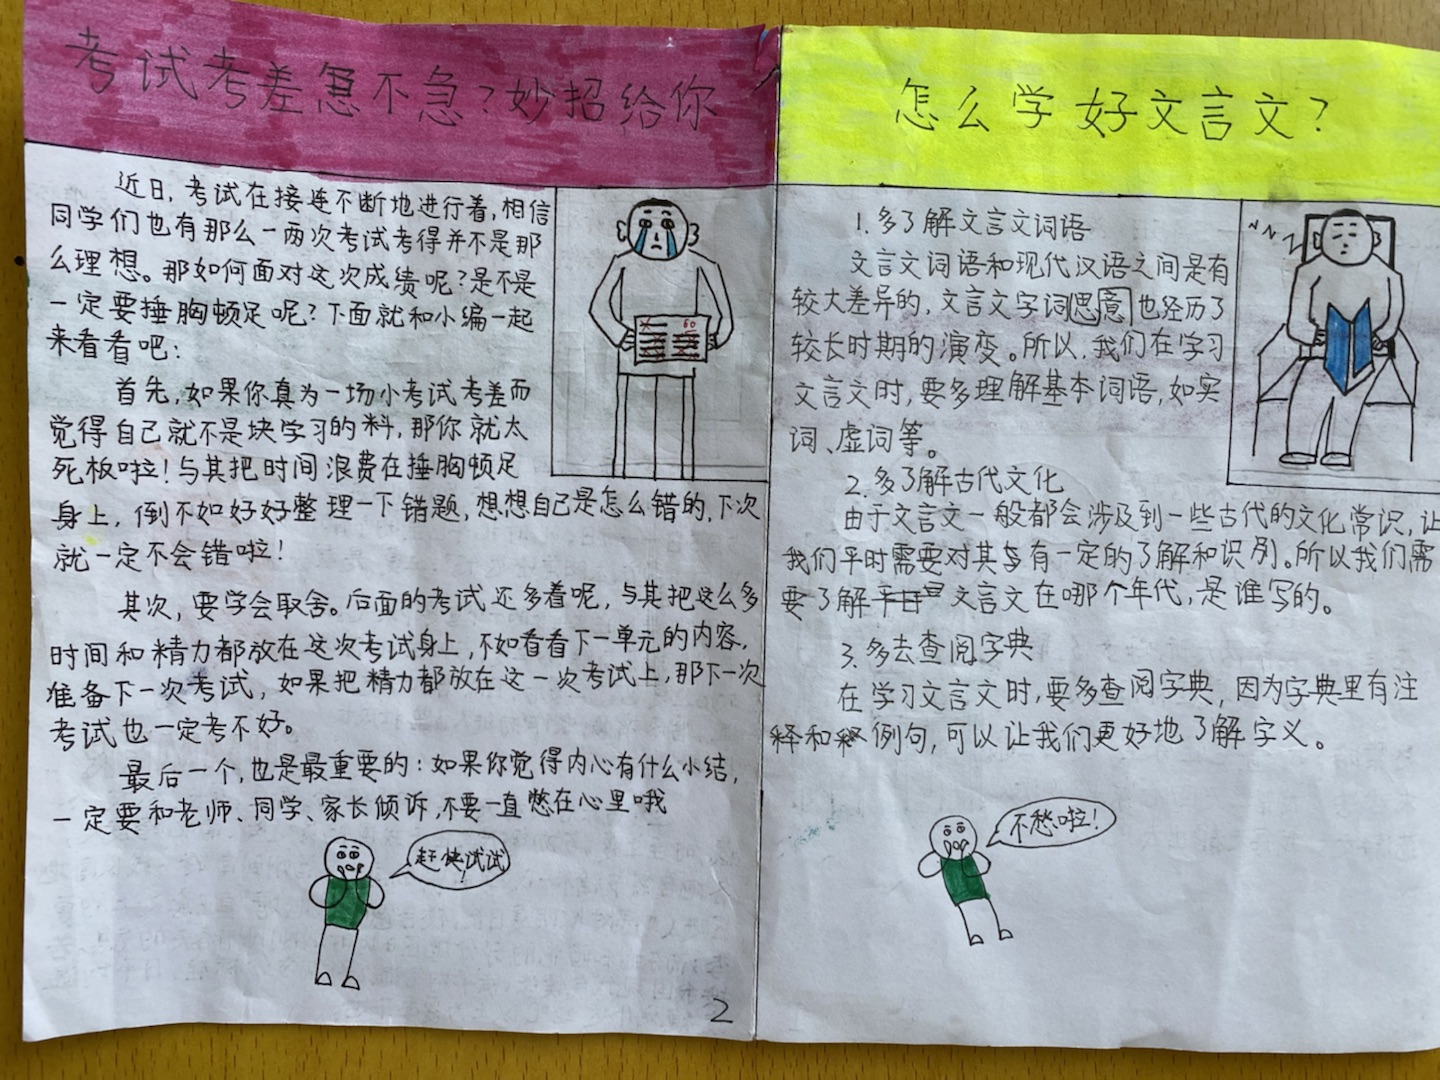 考试考差急不急？妙招给你
近日，考试在接连不断地进行着，相信
同学们也有那么一两次考试考得并不是那
么理想。那如何面对这次成绩呢？是不是
一定要捶胸顿足呢？下面就和小编一起
来看看吧：
首先，如果你真为一场小考试考差而
觉得自己就不是块学习的料，那你就太
死板啦！与其把时间浪费在捶胸顿足
身上，倒不如好好整理一下错题，想想自己是怎么错的，下次
就一定不会错啦！
其次，要学会取舍。后面的考试还多着呢，与其把这么多
时间和精力都放在这次考试身上，不如看看下一单元的内容，
准备下一次考试，如果把精力都放在这一次考试上，那下一次
考试也一定考不好。
最后一个，也是最重要的：如果你觉得内心有什么小结，
一定要和老师、同学、家长倾诉，不要一直憋在心里哦
赶快试试！
2
60
怎么学好文言文？
1.多了解文言文词语
文言文词语和现代汉语之间是有
较大差异的，文言文字词思意也经历了
较长时期的演变。所以，我们在学习
文言文时，要多理解基本词语，如实
词、虚词等。
2.多了解古代文化
由于文言文一般都会涉及到一些古代的文化常识，让
我们平时需要对其有一定的了解和识别。所以我们需
要了解文言文在哪个年代，是谁写的。
3.多去查阅字典
在学习文言文时，要多查阅字典，因为字典里有注
释和例句，可以让我们更好地了解字义。
zzzz
不愁啦！